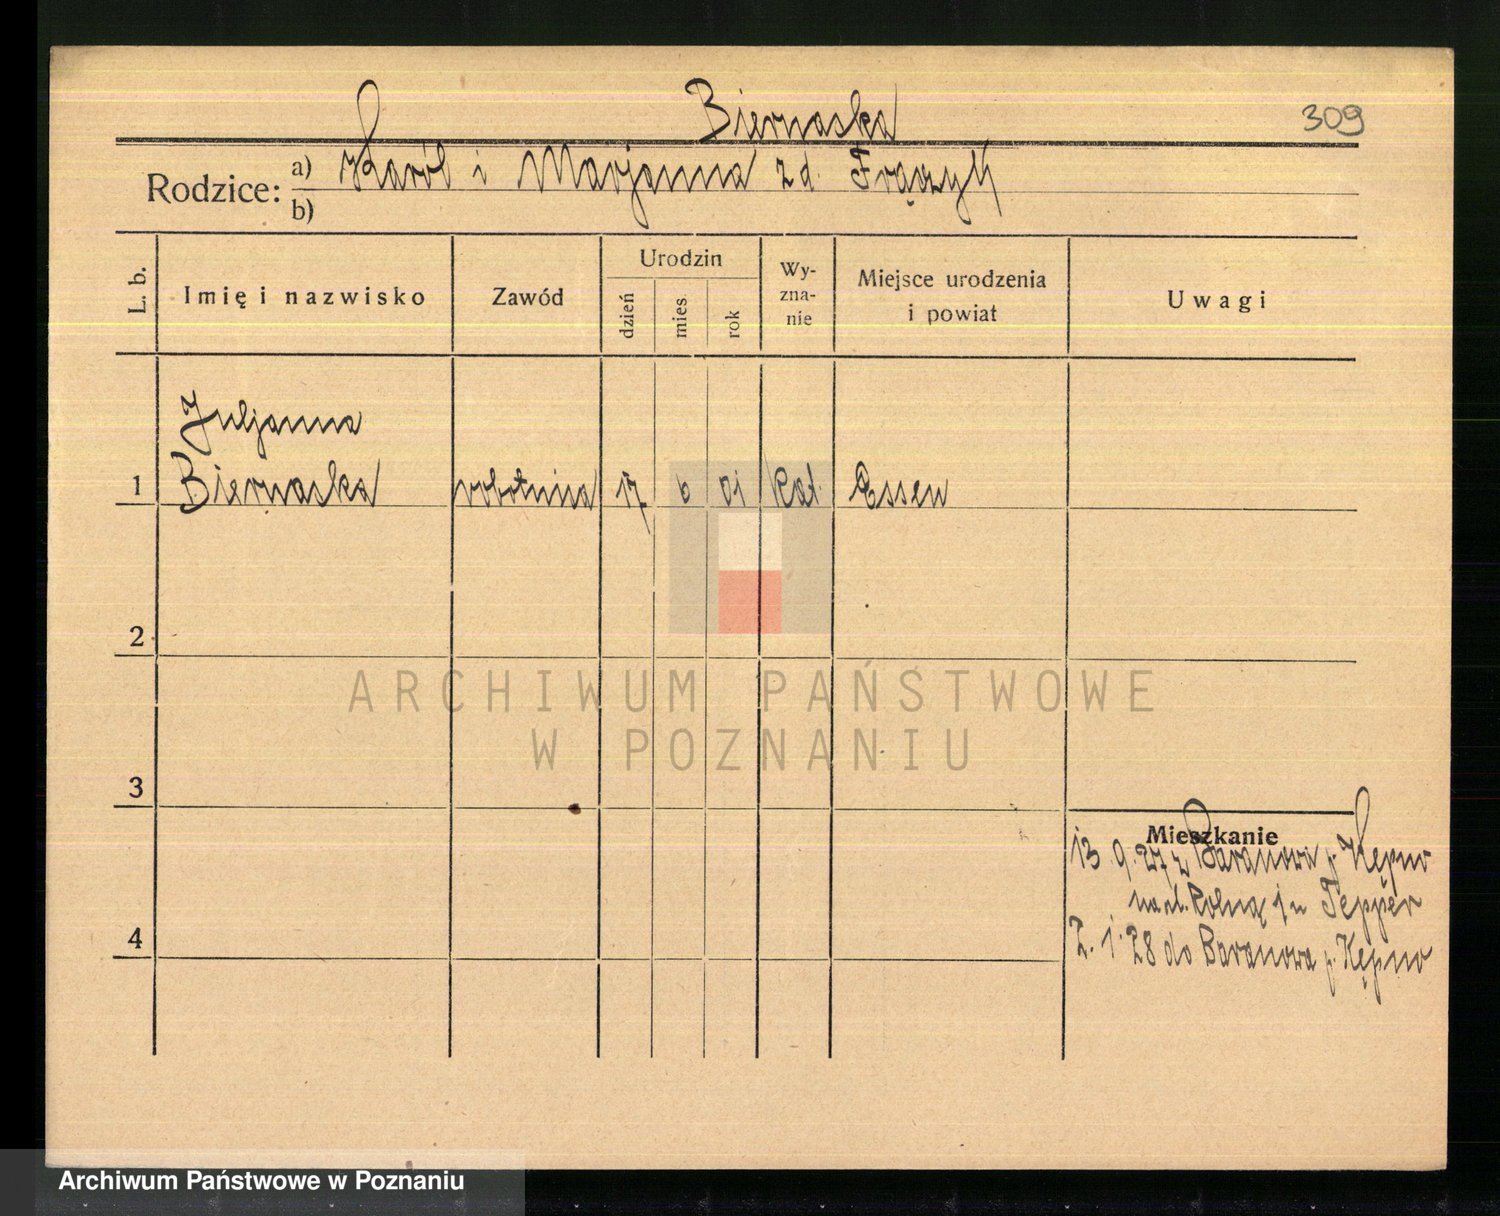 Biernaska
309
Rodzice: a) Karól i Marjanna z d. Frączyk
b)
L. b.
Imię i nazwisko
Zawód
Urodzin
dzień
mies
rok
Wy-
zna-
nie
Miejsce urodzenia
i powiat
Uwagi
Juljanna
1 Biernaska robotnica 17 6 01 Kat. Essen
2
3
4
Mieszkanie
13 9. 27 z Baranowa p. Kępno
na ul. Rolną u Tepper
2. 1. 28 do Baranowa p. Kępno
ARCHIWUM PAŃSTWOWE
W POZNANIU
Archiwum Państwowe w Poznaniu